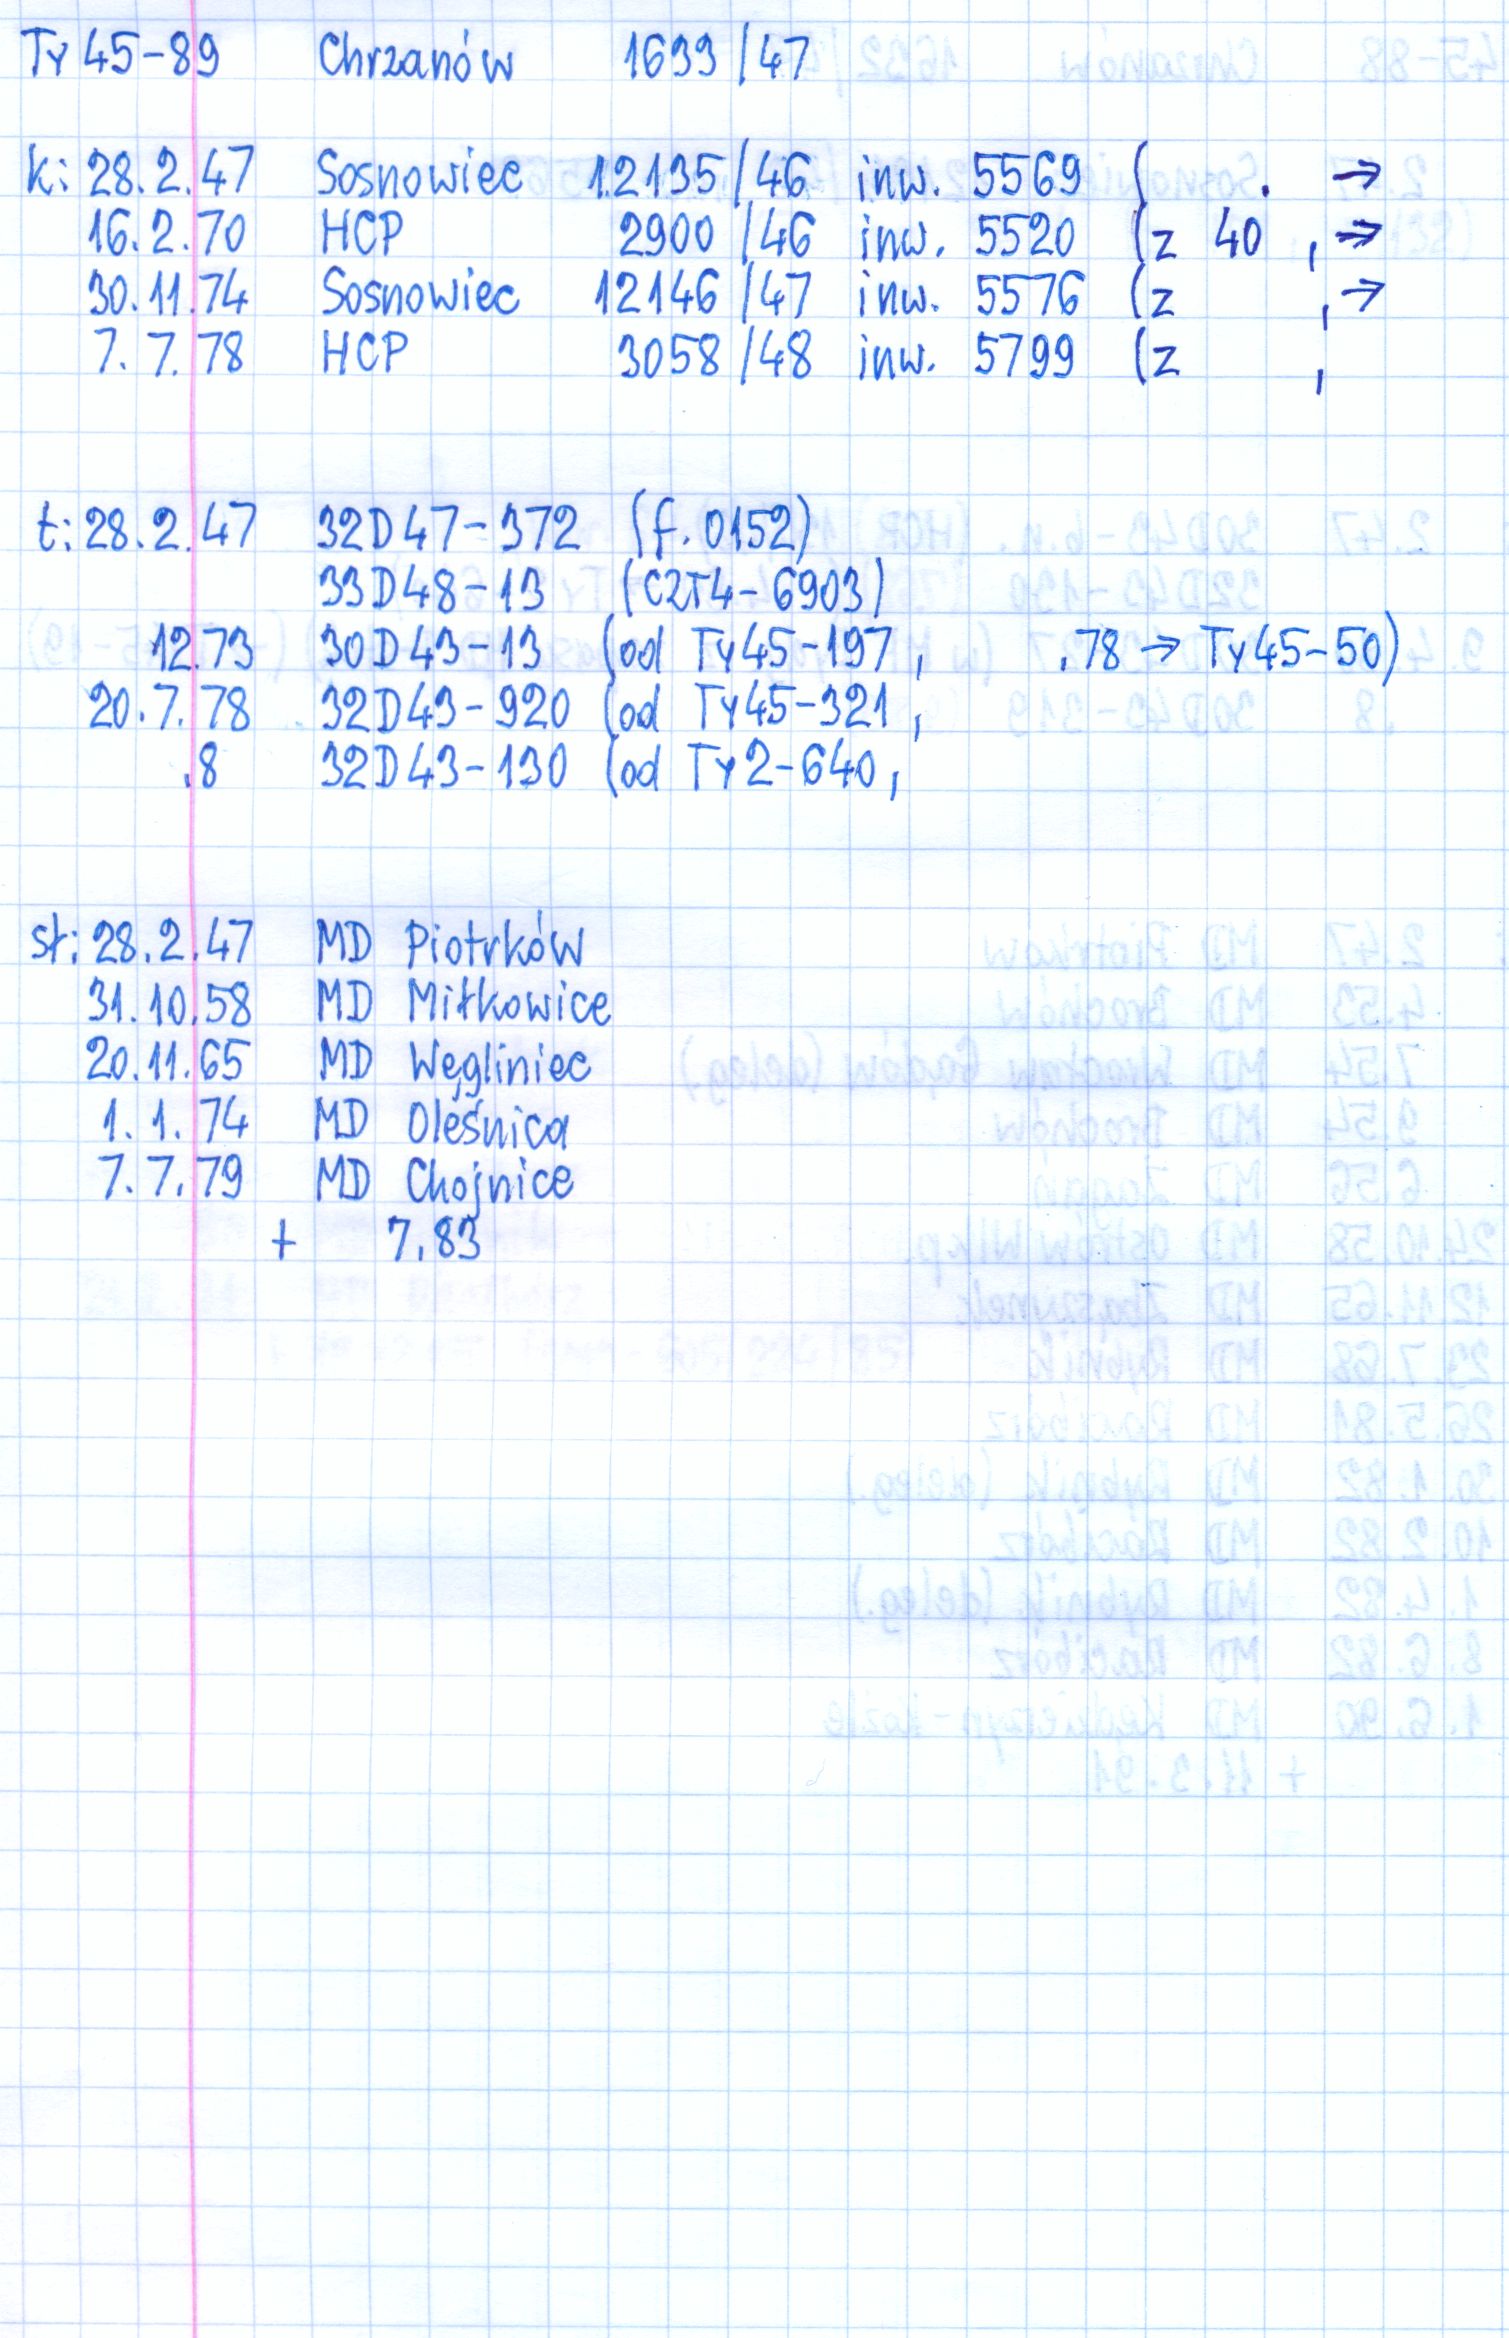 Ty 45-89 Chrzanów 1633/47
k: 28.2.47 Sosnowiec 12135/46 inw. 5569 ( . →
16.2.70 HCP 2900/46 inw. 5520 (z 40 , →
30.11.74 Sosnowiec 12146/47 inw. 5576 (z , →
7.7.78 HCP 3058/48 inw. 5799 (z ,
t: 28.2.47 32D47-372 (f. 0152)
33D48-13 (C2T4-6903)
12.73 30D43-13 (od Ty45-197, .78 → Ty45-50)
20.7.78 32D43-920 (od Ty45-321,
.8 32D43-130 (od Ty2-640,
st: 28.2.47 MD Piotrków
31.10.58 MD Miłkowice
20.11.65 MD Węgliniec
1.1.74 MD Oleśnica
7.7.79 MD Chojnice
+ 7.83